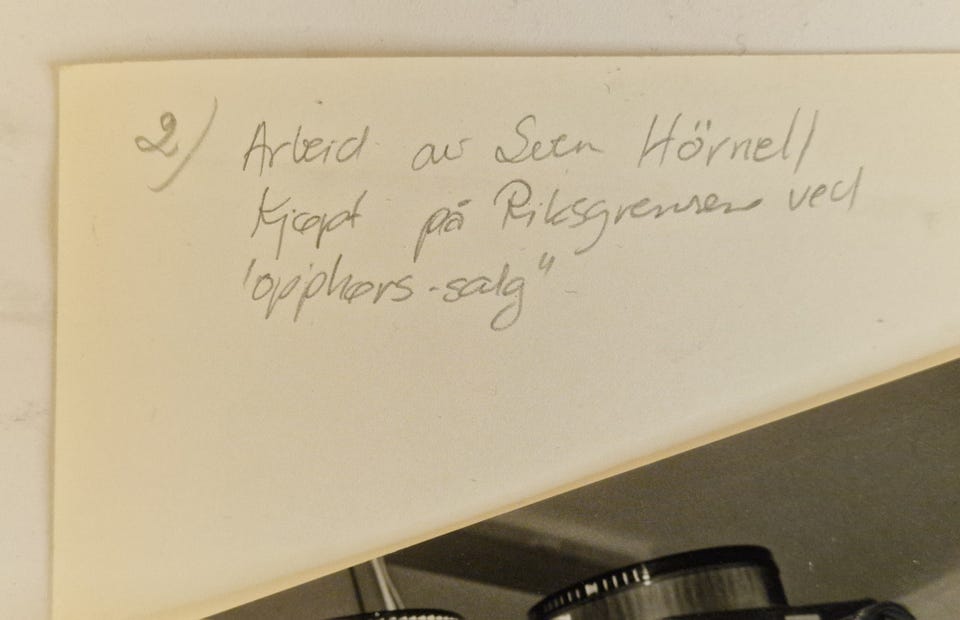 2) Arbeid av Sven Hörnell
Kjøpt på Riksgrensen ved
"opphørs-salg"